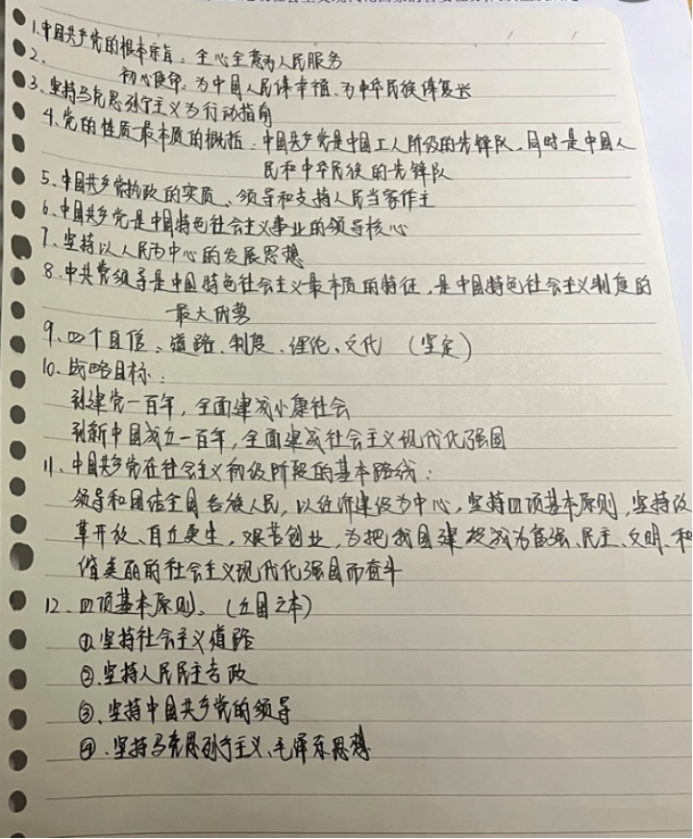 1.中国共产党的根本宗旨：全心全意为人民服务
2. 初心使命：为中国人民谋幸福、为中华民族谋复兴
3、坚持马克思列宁主义为行动指南
4、党的性质最本质的概括：中国共产党是中国工人阶级的先锋队，同时是中国人
民和中华民族的先锋队
5、中国共产党执政的实质、领导和支持人民当家作主
6、中国共产党是中国特色社会主义事业的领导核心
7、坚持以人民为中心的发展思想
8、中共党领导是中国特色社会主义最本质的特征，是中国特色社会主义制度的
最大优势
9、四个自信、道路、制度、理论、文化 （坚定）
10、战略目标：
到建党一百年，全面建成小康社会
到新中国成立一百年，全面建成社会主义现代化强国
11、中国共产党在社会主义初级阶段的基本路线：
领导和团结全国各族人民，以经济建设为中心，坚持四项基本原则，坚持改
革开放、自立更生，艰苦创业，为把我国建设成为富强、民主、文明、和
谐美丽的社会主义现代化强国而奋斗
12、四项基本原则、（立国之本）
①坚持社会主义道路
②、坚持人民民主专政
③、坚持中国共产党的领导
④、坚持马克思列宁主义、毛泽东思想